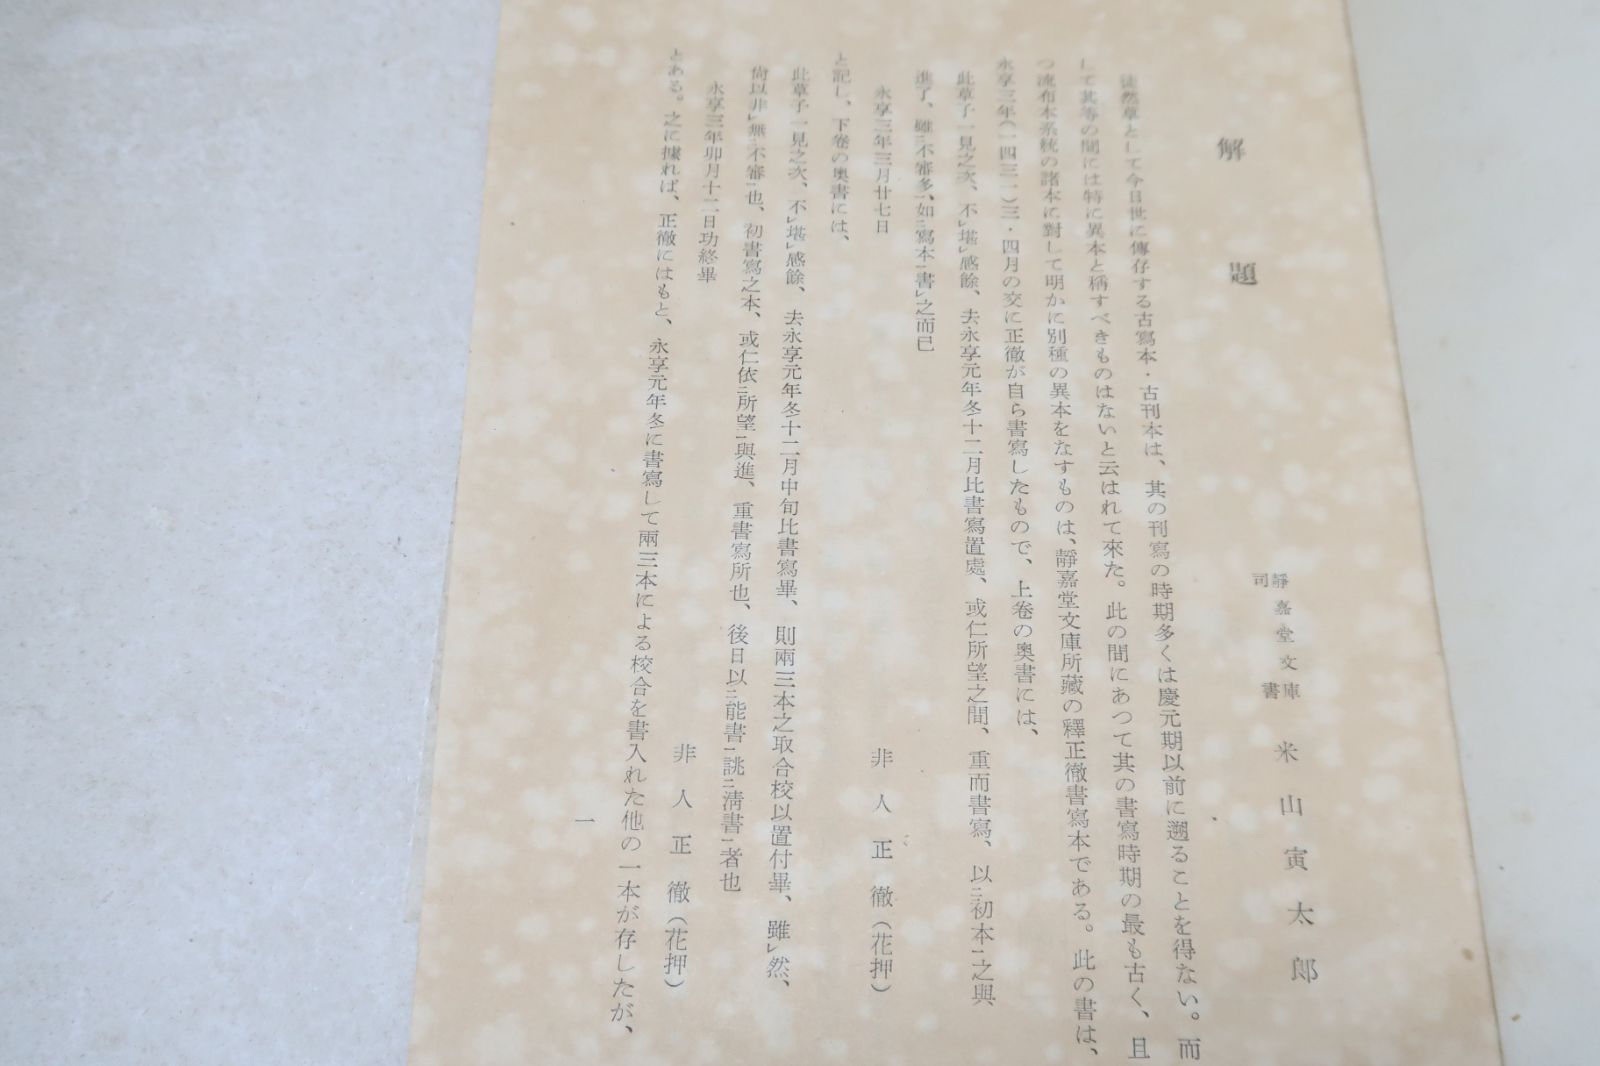 解題
靜嘉堂文庫
司書
米山寅太郎
徒然草として今日世に傳存する古寫本・古刊本は、其の刊寫の時期多くは慶元期以前に遡ることを得ない。而
して其等の間には特に異本と稱すべきものはないと云はれて來た。此の間にあつて其の書寫時期の最も古く、且
つ流布本系統の諸本に對して明かに別種の異本をなすものは、靜嘉堂文庫所藏の釋正徹書寫本である。此の書は、
永享三年(一四三一)三・四月の交に正徹が自ら書寫したもので、上卷の奧書には、
此草子一見之次、不㆑堪㆑感餘、去永享元年冬十二月比書寫置處、或仁所望之間、重而書寫、以㆓初本㆒之與
進了、雖㆓不審多㆒、如㆓寫本㆒書㆑之而已
永享三年三月廿七日
非人正徹(花押)
と記し、下卷の奧書には、
此草子一見之次、不㆑堪㆑感餘、去永享元年冬十二月中旬比書寫畢、則兩三本之取合校以置付畢、雖㆑然、
尙以非㆑無㆓不審㆒也、初書寫之本、或仁依㆓所望㆒與進、重書寫所也、後日以㆓能書㆒誂㆓淸書㆒者也
永享三年卯月十二日功終畢
非人正徹(花押)
とある。之に據れば、正徹にはもと、永享元年冬に書寫して兩三本による校合を書入れた他の一本が存したが、
一